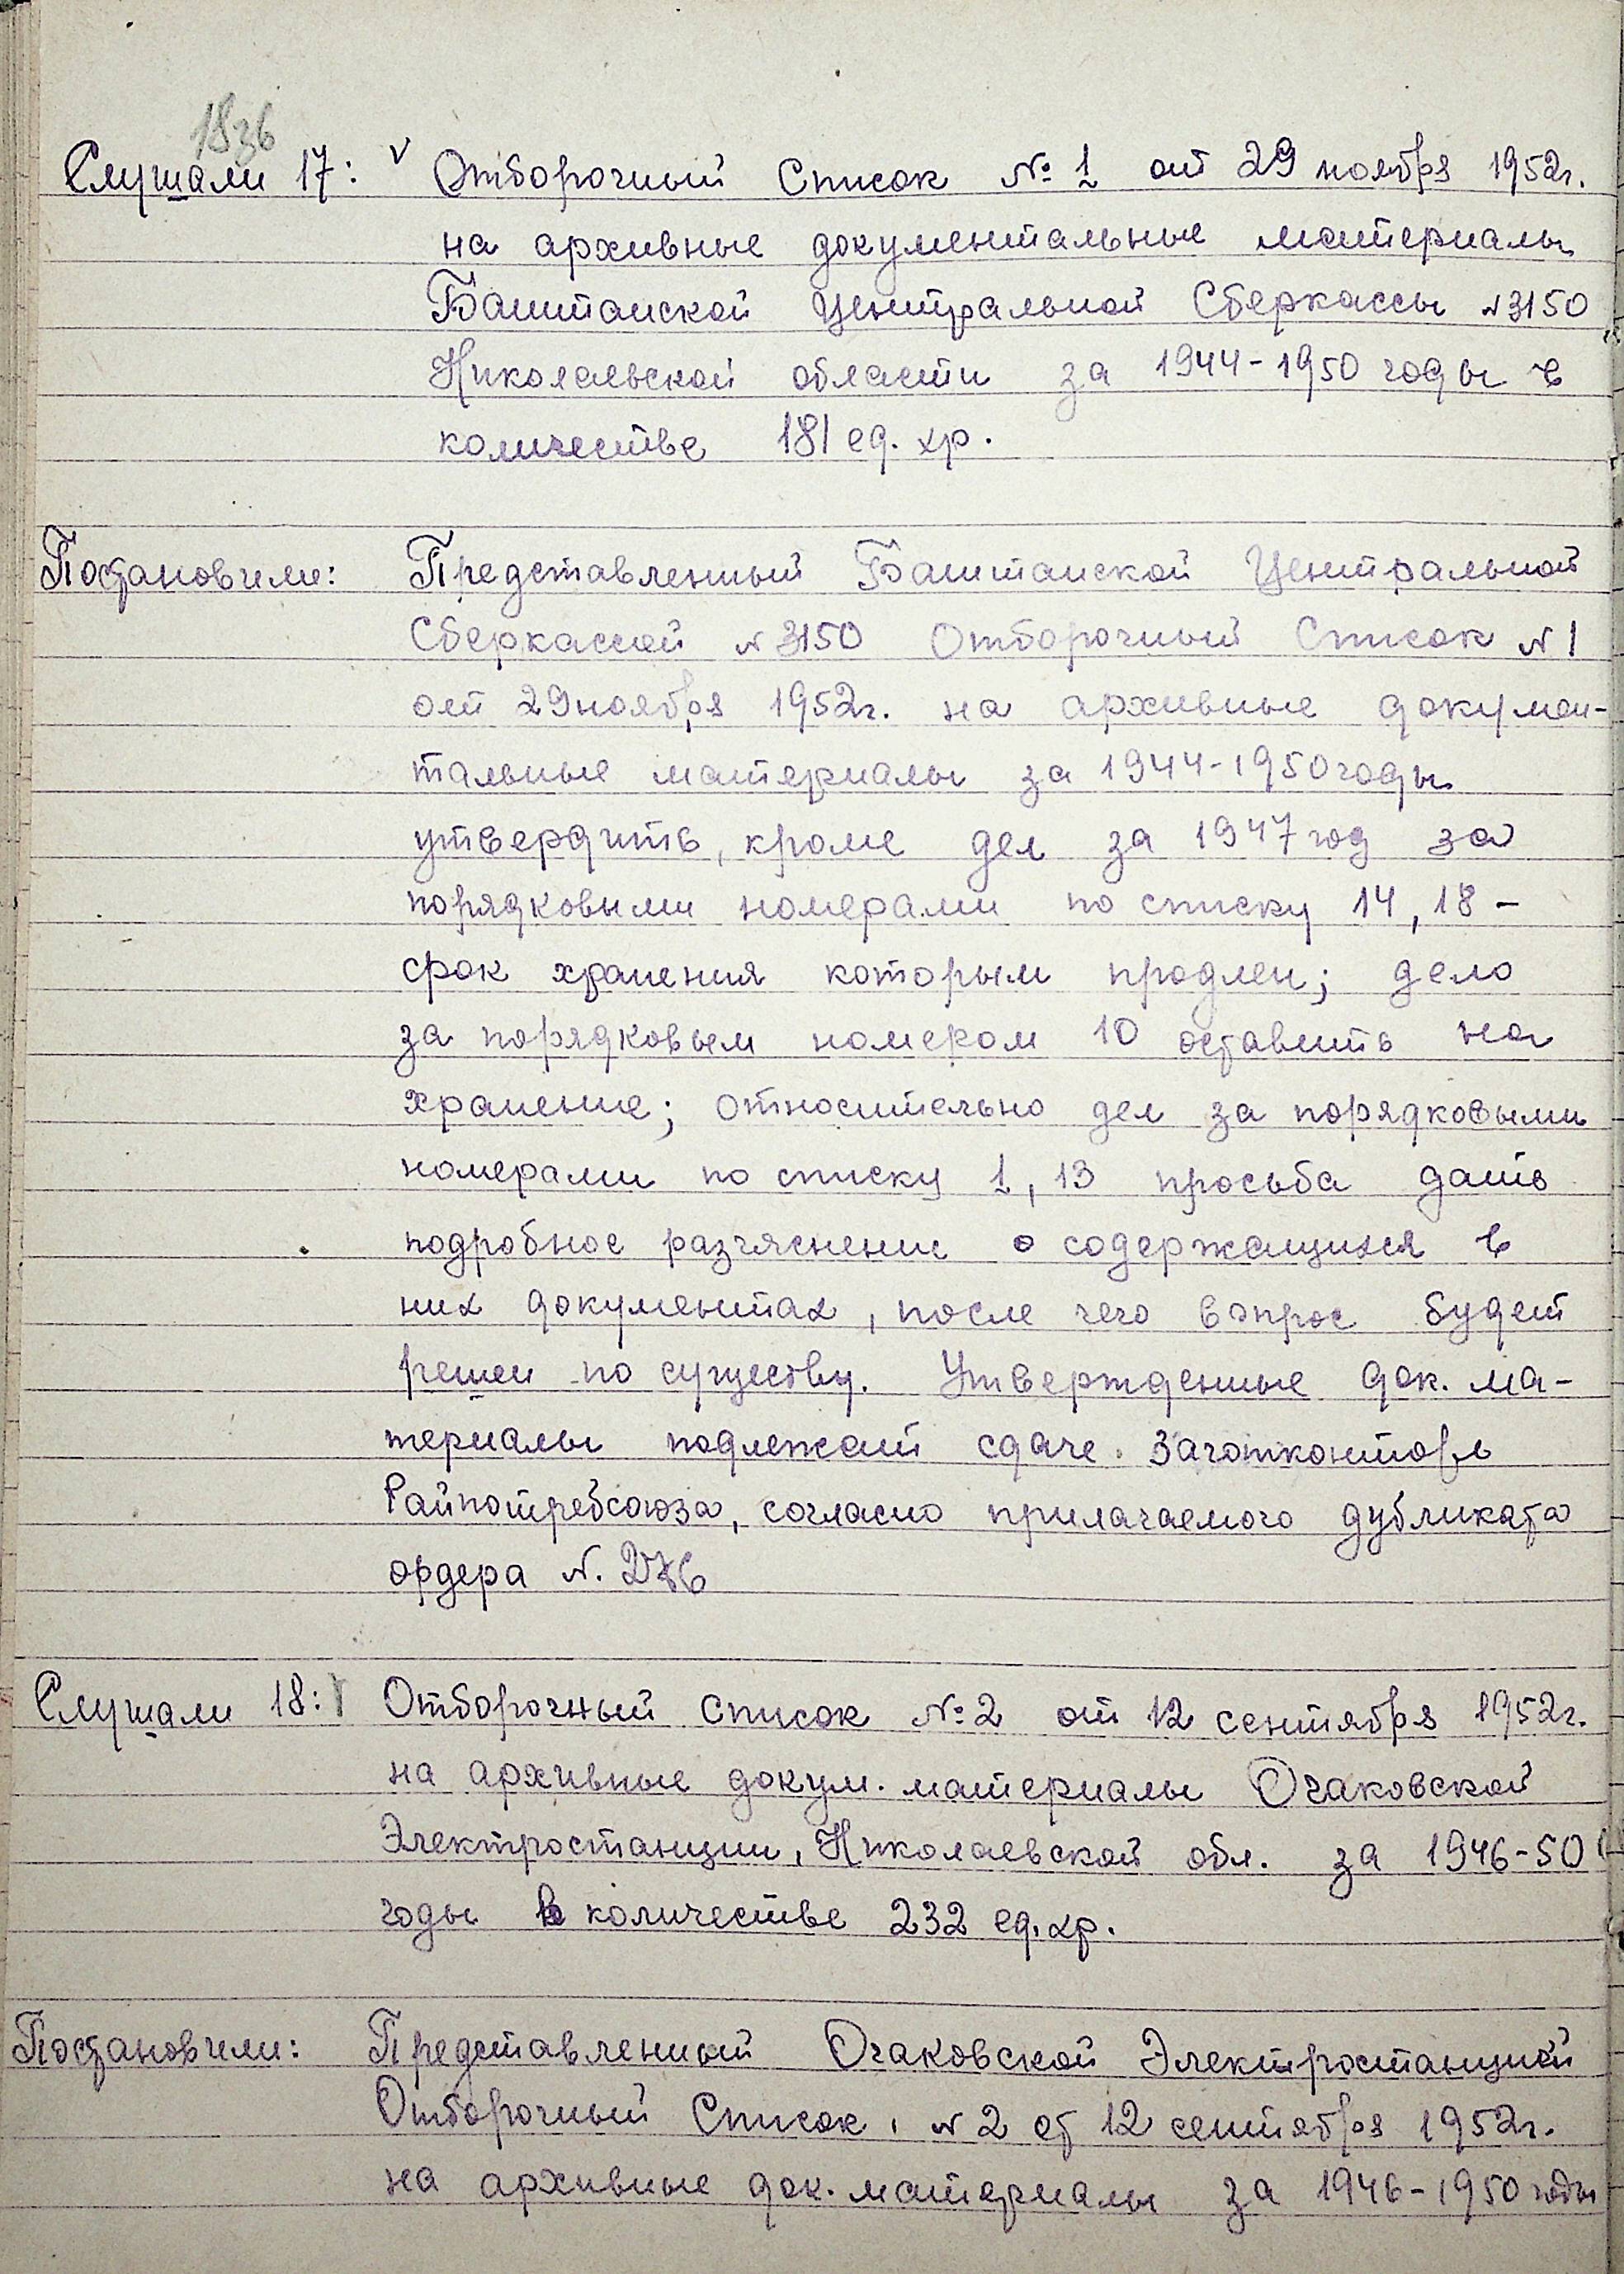 Слушали 17: v Отборочный Список № 1 от 29 ноября 1952г.
на архивные документальные материалы
Баштанской Центральной Сберкассы N 3150
Николаевской области за 1944-1950 годы в
количестве 181 ед. хр.
Постановили: Представленный Баштанской Центральной
Сберкассой N 3150 Отборочный Список N 1
от 29 ноября 1952г. на архивные докумен-
тальные материалы за 1944-1950 годы
утвердить, кроме дел за 1947 год за
порядковыми номерами по списку 14, 18 -
срок хранения которым продлен; дело
за порядковым номером 10 оставить на
хранение; относительно дел за порядковыми
номерами по списку 1, 13 просьба дать
подробное разъяснение о содержащихся в
них документах, после чего вопрос будет
решен по существу. Утвержденные док. ма-
териалы подлежат сдаче Заготконторе
Райпотребсоюза, согласно прилагаемого дубликата
ордера N.
Слушали 18: Отборочный Список № 2 от 12 сентября 1952г.
на архивные докум. материалы Очаковской
Электростанции, Николаевской обл. за 1946-50
годы в количестве 232 ед. хр.
Постановили: Представленный Очаковской Электростанцией
Отборочный Список, N 2 от 12 сентября 1952г.
на архивные док. материалы за 1946-1950 годы